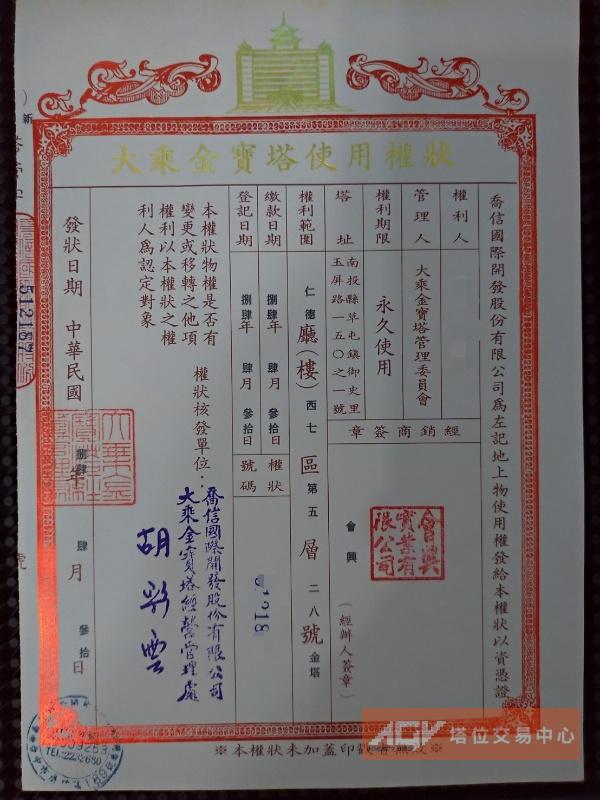 大乘金寶塔使用權狀
喬信國際開發股份有限公司為左記地上物使用權發給本權狀以資憑證
權利人
管理人
大乘金寶塔管理委員會
權利期限
永久使用
塔址
南投縣草屯鎮御史里
玉屏路一五〇之一號
經銷商簽章
會興
會興
實業有
限公司
（經辦人簽章）
權利範圍
仁德廳（樓）西七區第五層二八號金塔
繳款日期
捌肆年肆月參拾日
登記日期
捌肆年肆月參拾日
權狀
號碼
本權狀物權是否有
變更或移轉之他項
權利以本權狀之權
利人為認定對象
權狀核發單位：
喬信國際開發股份有限公司
大乘金寶塔經營管理處
胡彩雲
發狀日期 中華民國捌肆年肆月參拾日
512167
號
※本權狀未加蓋印鑑者無效※
AGV 塔位交易中心